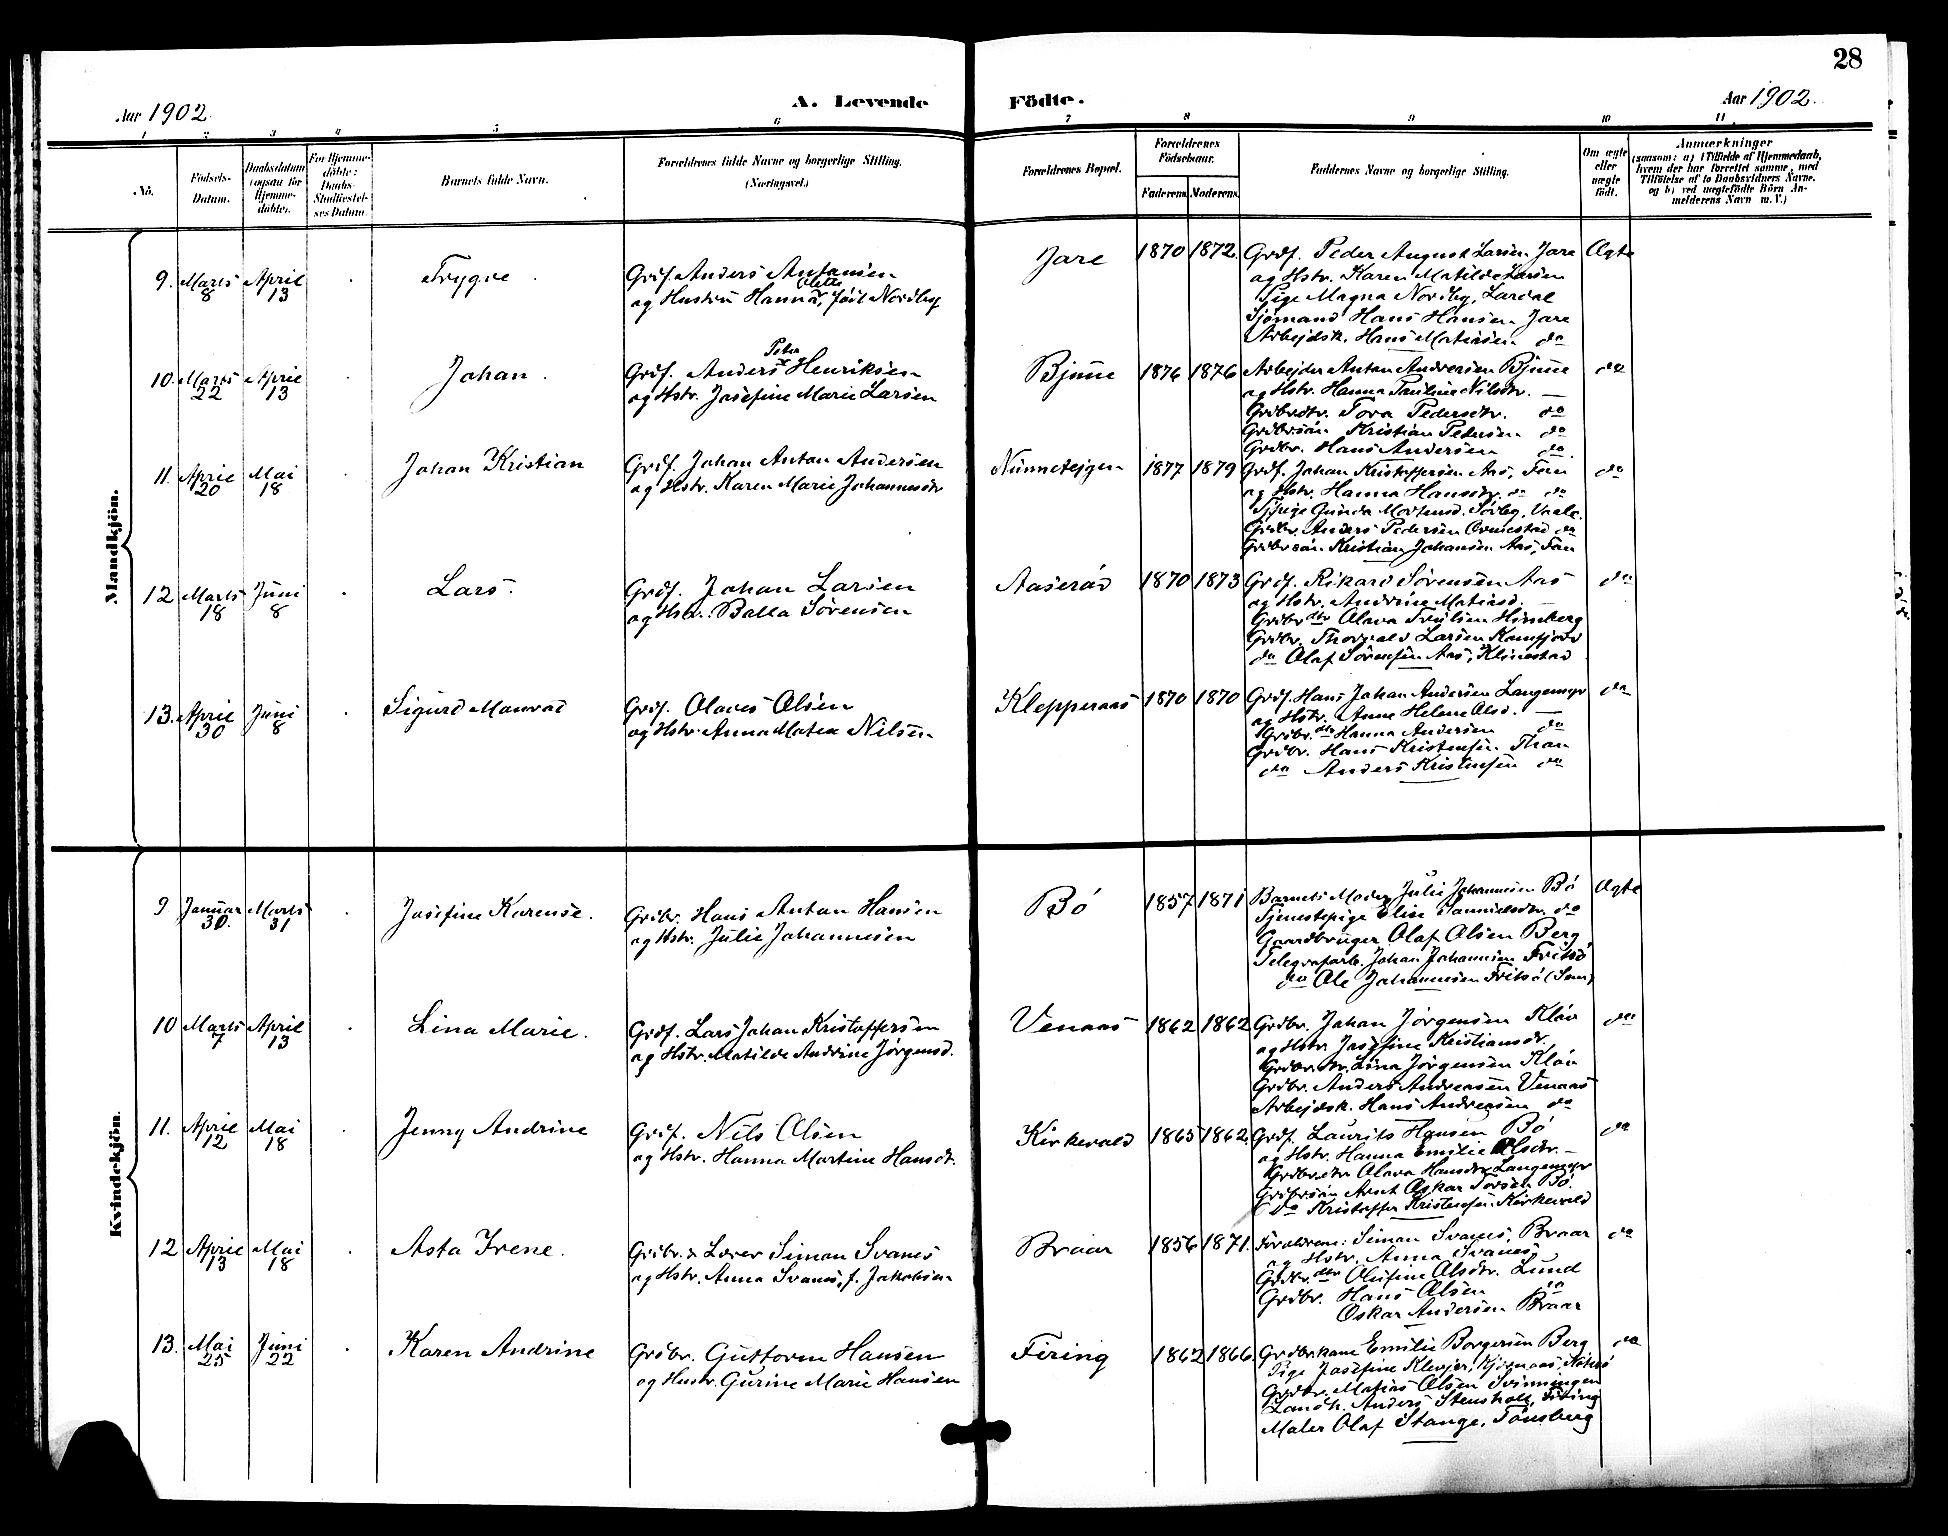 28
Aar 1902
A. Levende Födte.
Aar 1902
1 2 3 4 5 6 7 8 9 10 11
No.
Födsels-Datum.
Daabsdatum (ogsaa for Hjemme-döbte).
For Hjemme-döbte: Daabs-Stadfæstel-ses Datum.
Barnets fulde Navn.
Forældrenes fulde Navne og borgerlige Stilling. (Næringsvei.)
Forældrenes Bopæl.
Forældrenes Födselsaar.
Faderens. Moderens.
Faddernes Navne og borgerlige Stilling.
Om ægte eller uægte födt.
Anmærkninger
(saasom: a) i Tilfælde af Hjemmedaab,
hvem der har forrettet samme, med
Tilföielse af to Daabsvidners Navne,
og b) ved uægtefödte Börn An-
melderens Navn m. V.)
Mandkjön.
9. Marts 8 April 13 Trygve
Grdf. Anders Antonsen
og Hustru Hanna, född Nordby
Jare 1870 1872 Grdf. Peder August Larsen Jare Ægte
og Hstr. Karen Matilde Larsen
Pige Magna Nordby, Lardal
Sjømand Hans Hansen Jare
Arbejdsk. Hans Matisen do
10. Marts 22 April 13 Johan
Peter
Grdf. Anders Henriksen
og Hstr. Josefine Marie Larsen
Bjune 1876 1876 Arbejder Anton Andersen Bjune do
og Hstr. Hanna Pauline Nilsdtr. —
Grdbrdtr. Tora Pedersdtr. do
Grdbrsön Kristian Pedersen do
Grdbr. Hans Andersen do
11. April 20 Mai 18 Johan Kristian
Grdf. Johan Anton Andersen
og Hstr. Karen Marie Johannesdtr
1877 1879 Grdf. Johan Kristoffersen Aas, do
og Hstr. Hanna Hansdtr. do do
Gunda Mortensd. Sörby, Vaale.
Grdbr. Anders Pedersen do
Grdbrsön Kristian Johansen Aas,
12 Marts 18 Juni 8 Lars.
Grdf. Johan Larsen
og Hstr. Balla Sörensen
Aaseröd 1870 1873 Grdf. Rikard Sörensen Aas do
og Hstr. Andrine Matiasd. —
Grdbr. dtr Olava Himberg
Grdbr. Thorvald Larsen
do Olaf Sörensen Aas, Klinestad
13. April 30 Juni 8 Sigurd Manvad
Grdf. Olaves Olsen
og Hstr. Anna Matea Nilsen
Klepperaas 1870 1870 Grdf. Hans Johan Andersen Langemyr do
og Hstr. Anne Helene Olsd. —
Grdbr. dtr Hanna Andersen do
Grdbr. Hans Kristensen Thon
do Anders Kristensen do
Kvindekjön.
9 Januar 30. Marts 31 Josefine Karense.
Grdbr. Hans Anton Hansen
og Hstr. Julie Johannesen
Bö 1857 1871 Barnets Moder Julie Johannesen Bö Ægte
Tjenestepige Elise do
Gaardbruger Olaf Olsen Berg
Telegrafarb. Johan Johannesen Fritsö
do Ole Johannesen Fritsö (Sem)
10 Marts 7 April 13 Lina Marie.
Grdf. Lars Johan Kristoffersen
og Hstr. Matilde Andrine Jörgensd.
Venaas 1862 1862 Grdbr. Johan Jörgensen Klöv do
og Hstr Josefine Kristiansdr.
Grdbr. dtr. Lina Jörgensen Klöv
Grdbr. Anders Andreasen Venaas
Arbejdsk. Hans Andreasen do
11. April 12 Mai 18 Jenny Andrine
Grdf. Nils Olsen
og Hstr. Hanna Martine Hansdt.
Kirkevold 1865 1862 Grdf. Laurits Hansen Bö do
og Hstr. Hanna Emilie Olsdtr. —
Grdbr. dtr Olava Hansdtr Langemyr
Grdbrsön Oskar Bö.
do Kristoffer Kristensen Kirkevold
12 April 13 Mai 18 Asta Irene.
Grdbr. & Lærer Simon Svanes
og Hstr. Anna Svanes, f. Jakobsen
Braar 1856 1871. Forældrene: Simon Svanes, Braar do
og Hstr. Anna Svanes,
Grdbr. dtr Olufine Olsdtr. Lund
Grdbr. Hans Olsen do
Oskar Andersen Braar
13. Mai 25 Juni 22 Karen Andrine
Grdbr. Guttorm Hansen
og Hustr. Gurine Marie Hansen
Firing 1862 1866. Grdbr. kone Emilie Borgersen Berg do
Pige Josefine
Grdbr. Matias Olsen Svinningen
Landh. Anders Stensholt, Firing
Maler Olaf Stange, Tönsberg